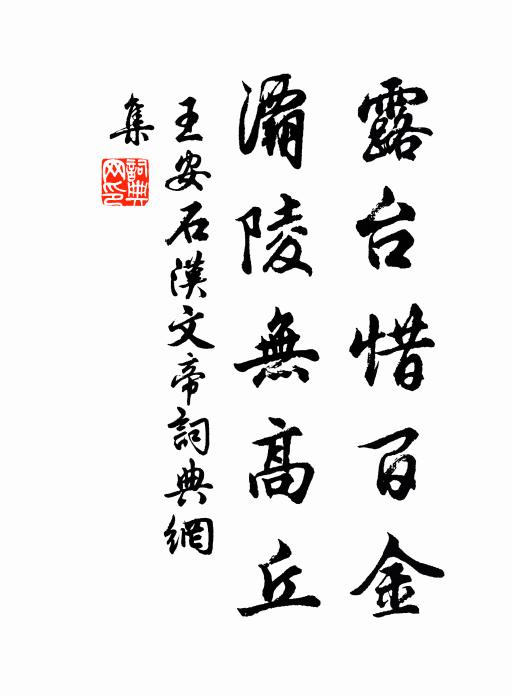 露台惜百金
灞陵無高丘
王安石漢文帝詞典網
集
詞典网印